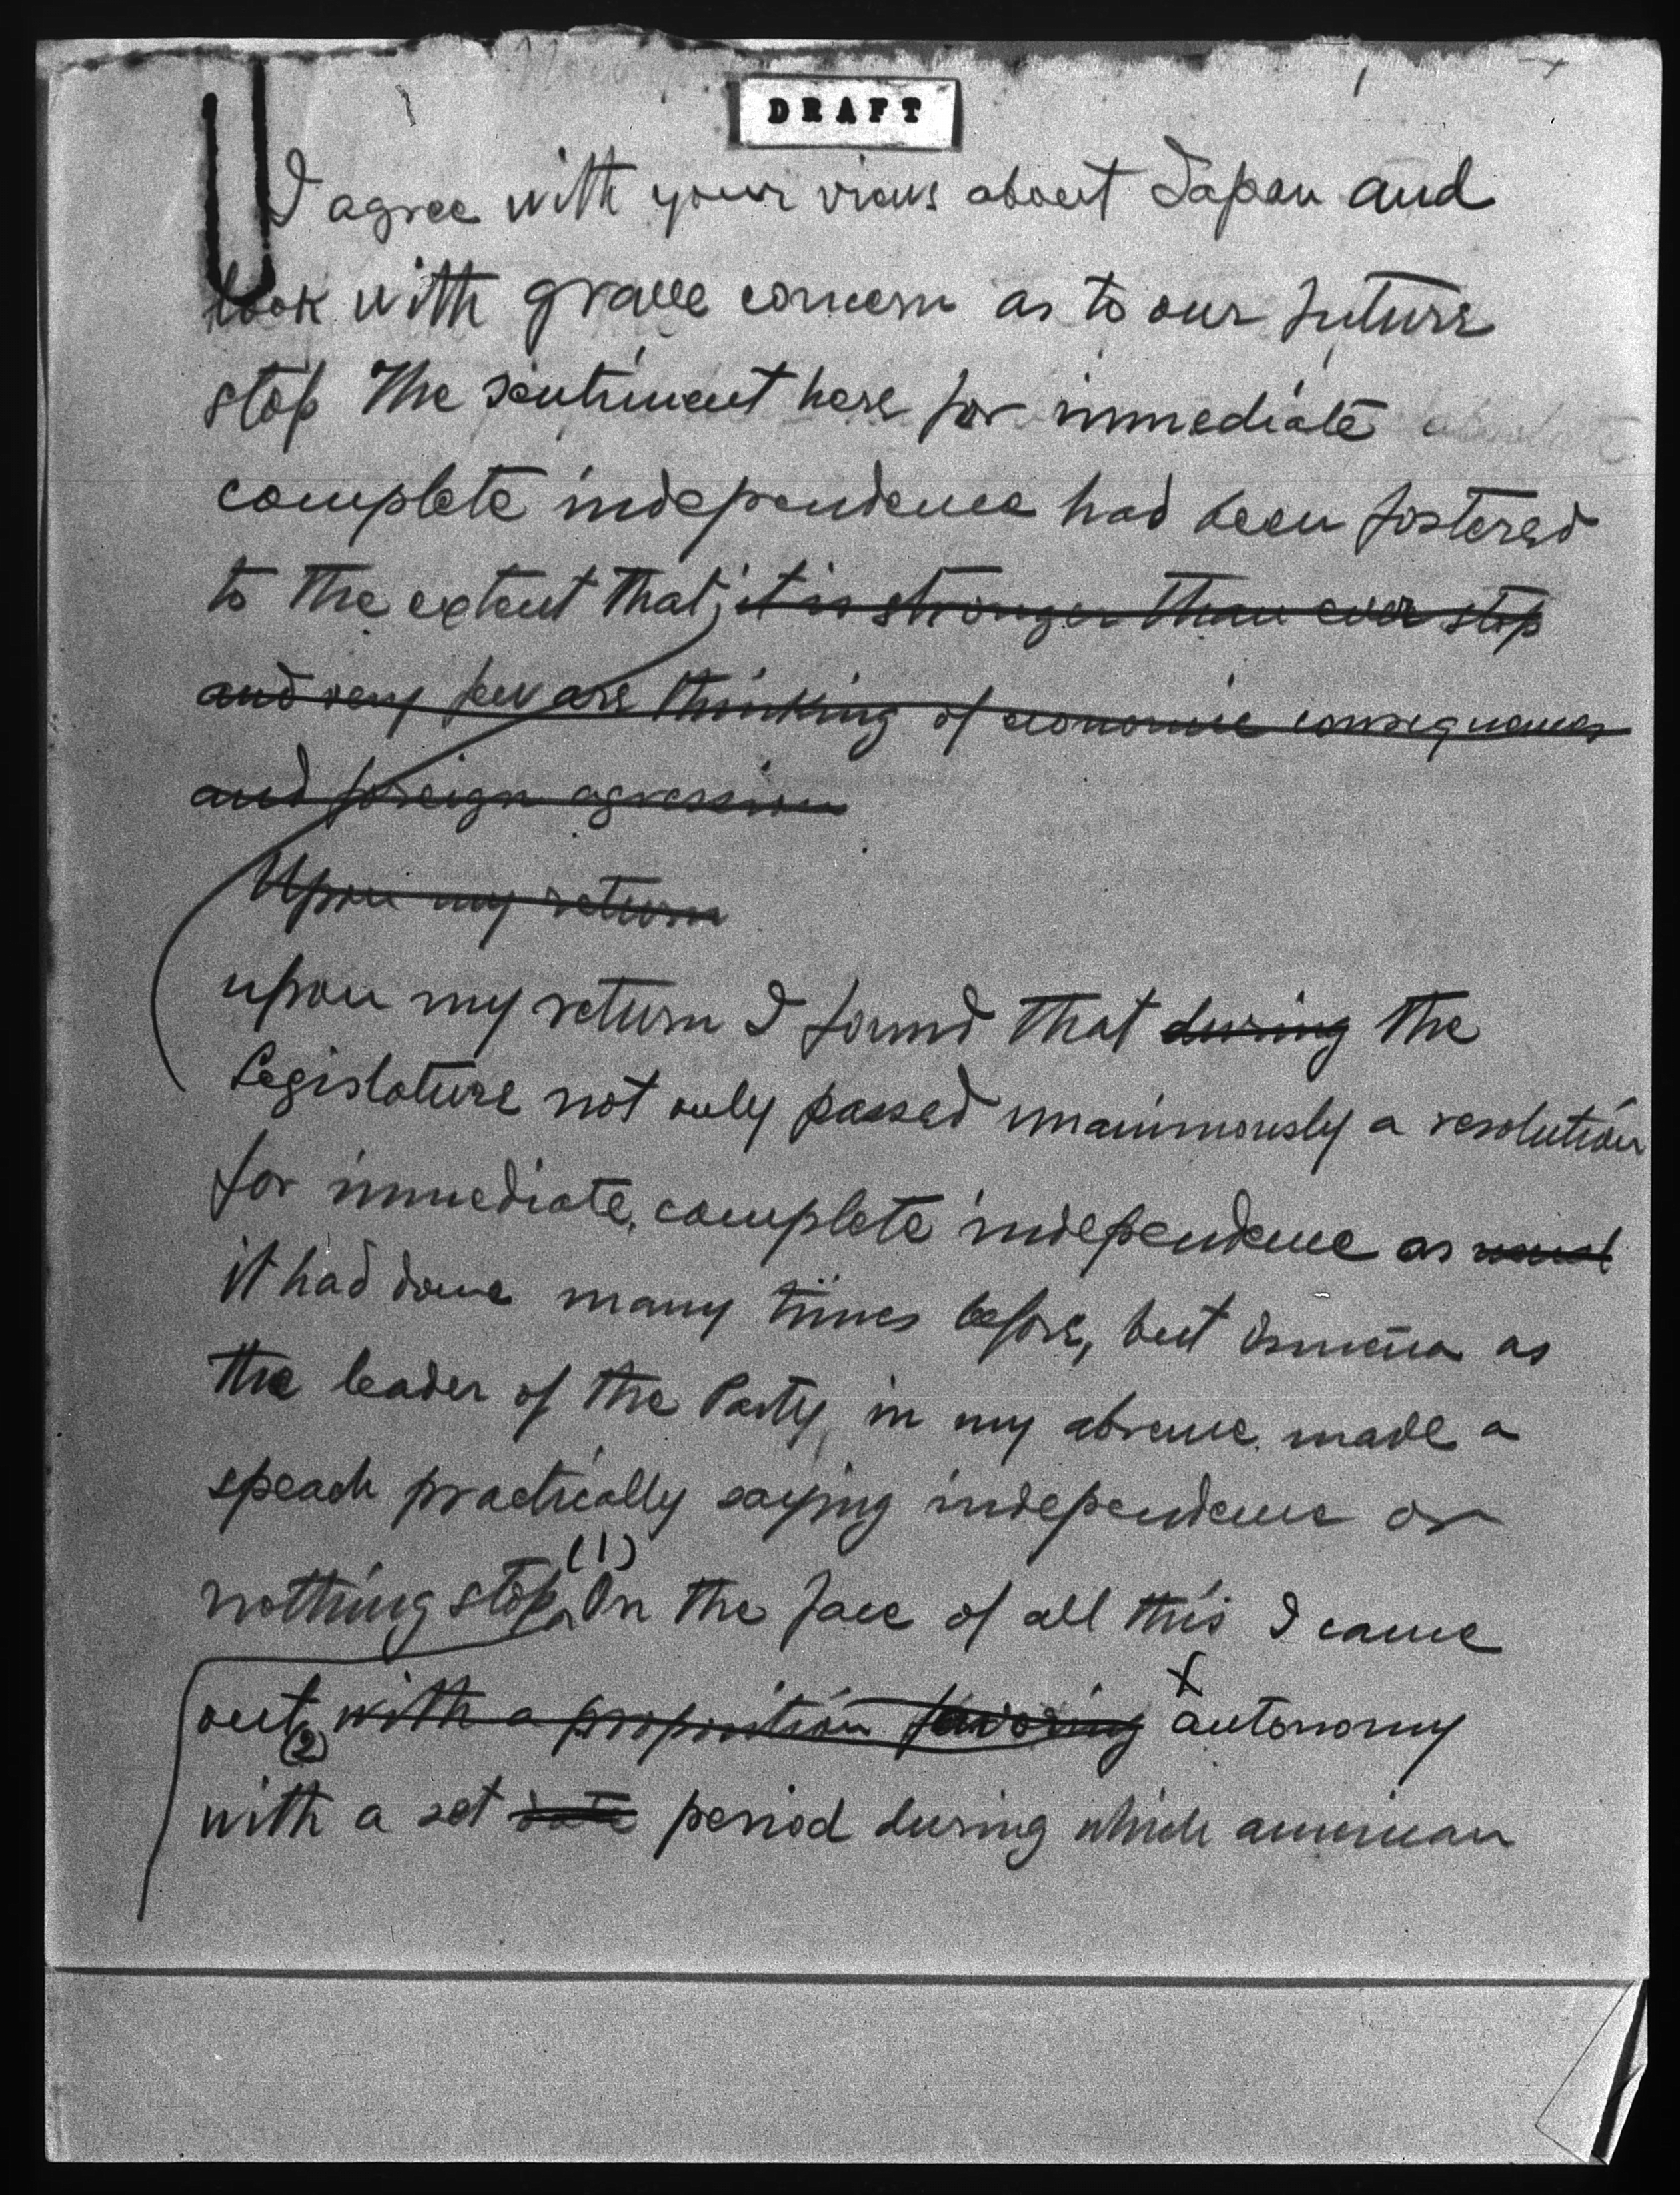 DRAFT
I agree with your views about Japan and
look with grave concern as to our future
stop The sentiment here for immediate absolute
complete independence had been fostered
to the extent that, it is stronger than ever stop
and very few are thinking of economic consequences
and foreign agression
Upon my return
upon my return I found that during the
Legislature not only passed unanimously a resolution
for immediate, complete independence as
it had done many times before, but Osmeña as
the leader of the Party, in my absence made a
speach practically saying independence or
(1)
nothing stop, In the face of all this I came
out with a proposition favoring X autonomy
(2)
with a set date period during which american